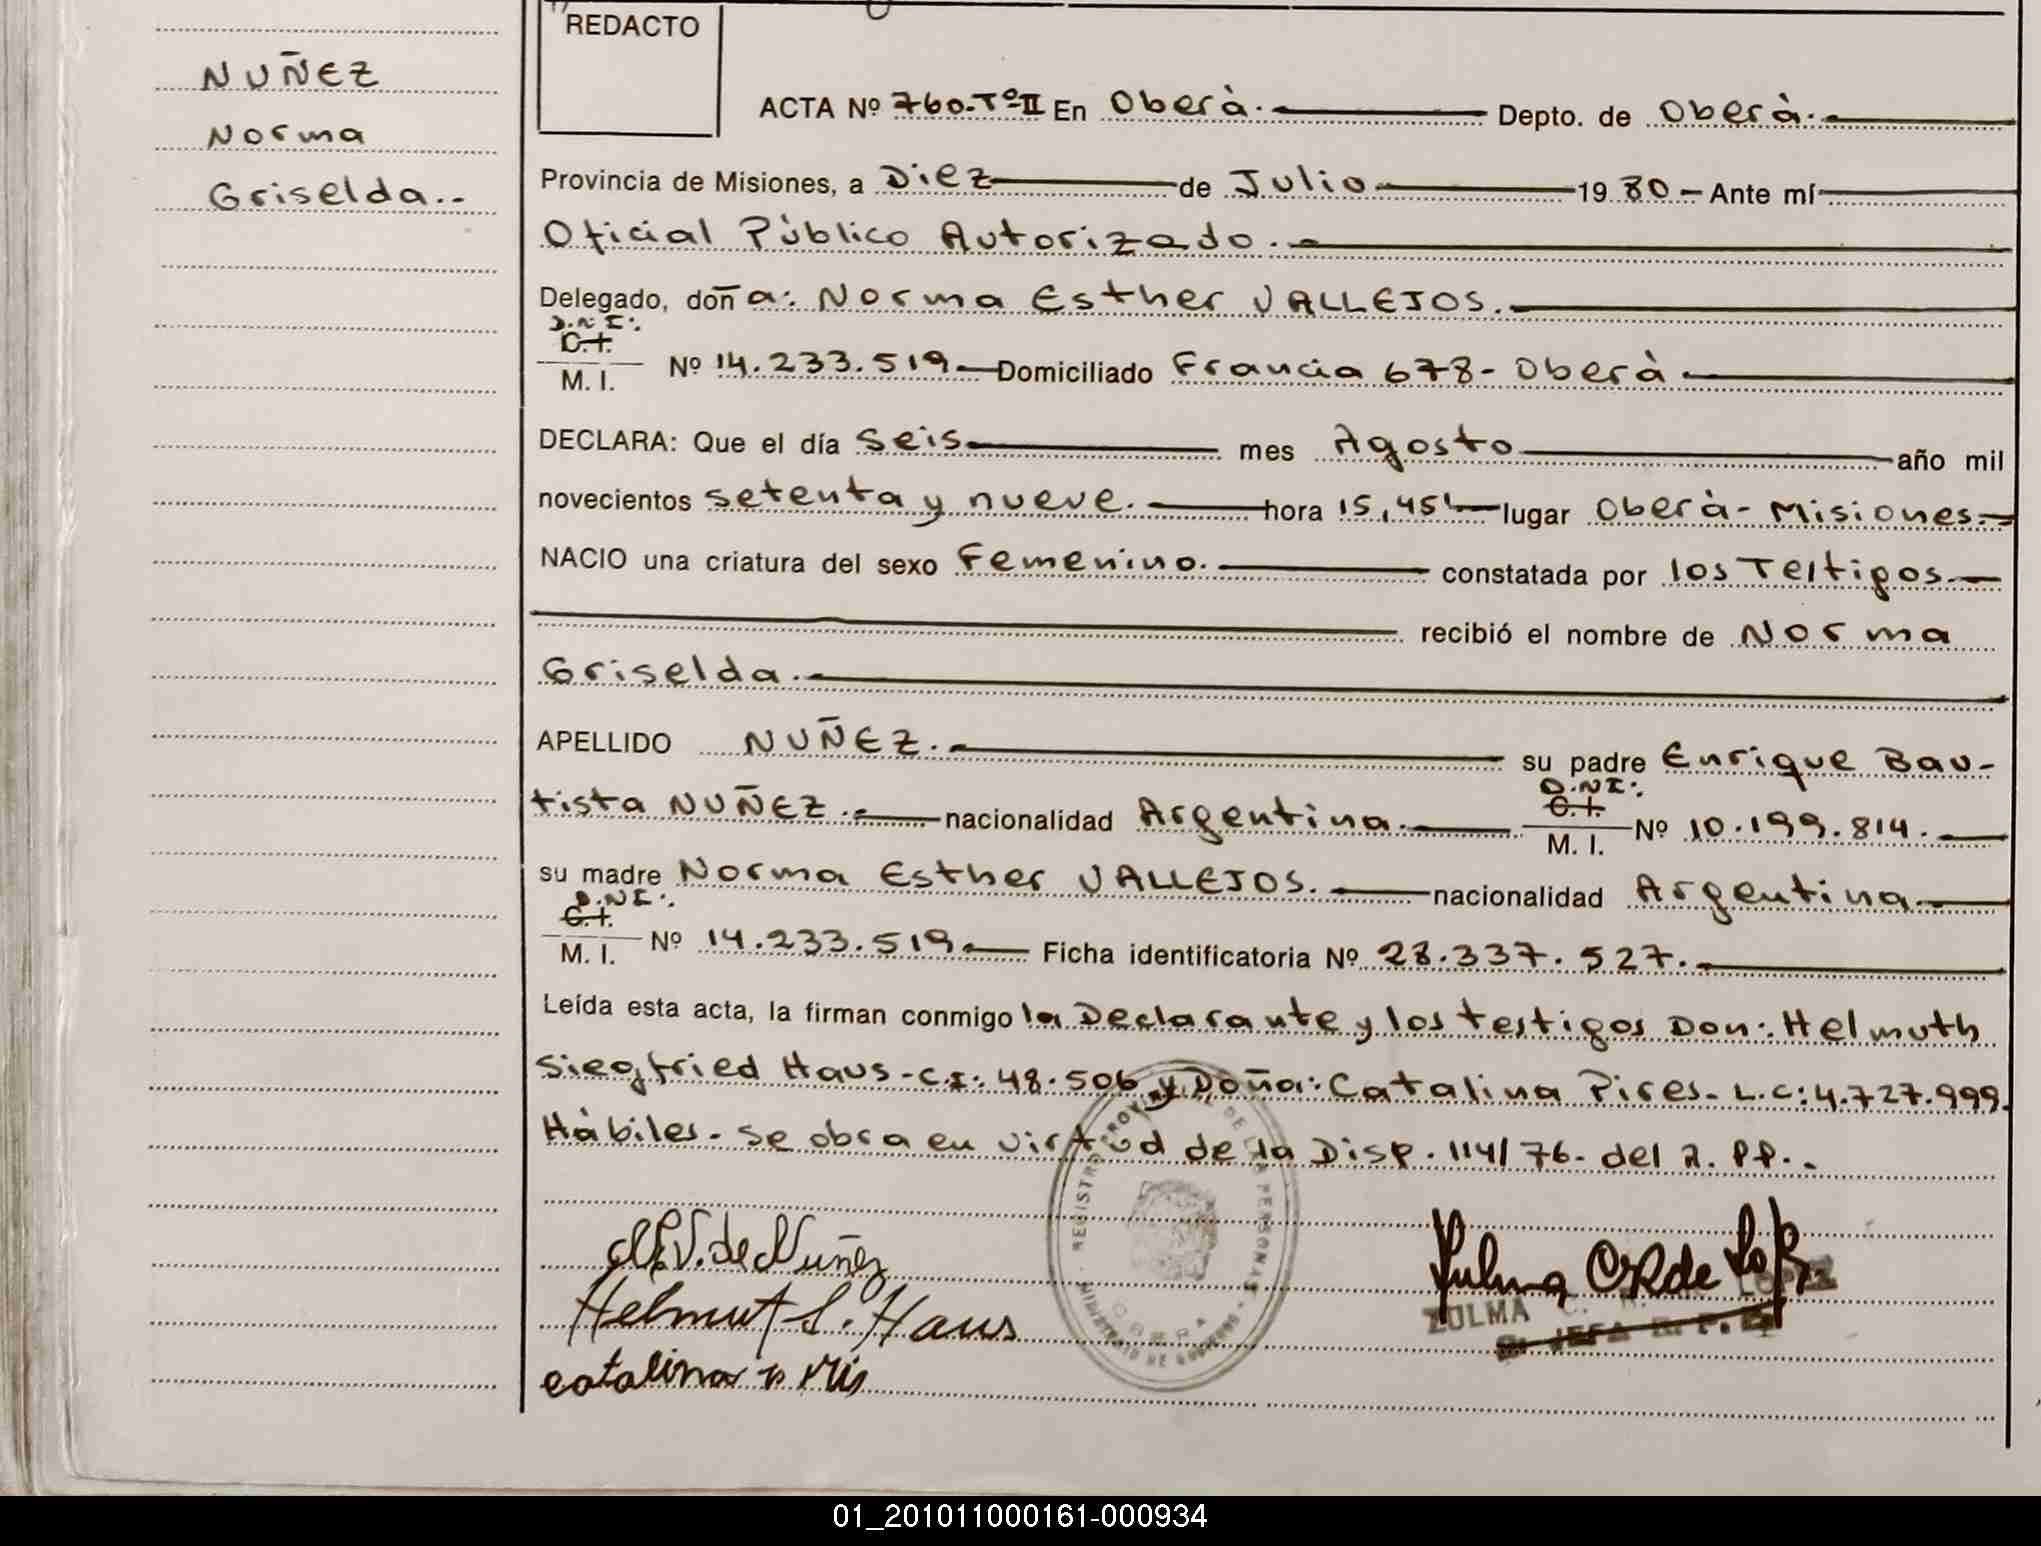 NUÑEZ
Norma
Griselda..
REDACTO
ACTA Nº 760-Tº-II En Oberà. Depto. de Oberà.
Provincia de Misiones, a Diez de Julio 19 80 - Ante mí
Oficial Pùblico Autorizado.
Delegado, doña: Norma Esther VALLEJOS.
D.N.I:.
C.I.
M. I. Nº 14.233.519 Domiciliado Francia 678- Oberà
DECLARA: Que el día seis mes Agosto año mil
novecientos setenta y nueve. hora 15,45 lugar Oberà- Misiones.
NACIO una criatura del sexo Femenino. constatada por los Testigos.
recibió el nombre de Norma
Griselda.
APELLIDO NUÑEZ. su padre Enrique Bau-
tista NUÑEZ. nacionalidad Argentina.
D.N.I:.
C.I.
M. I. Nº 10.199.814.
su madre Norma Esther VALLEJOS. nacionalidad Argentina
D.N.I:.
C.I.
M. I. Nº 14.233.519 Ficha identificatoria Nº 28.337.527.
Leída esta acta, la firman conmigo la Declarante y los testigos Don: Helmuth
Siegfried Haus-C.I: 48.506 y Doña: Catalina Pires- L.C: 4.727.999.
Hàbiles- se obra en virtud de la Disp. 114/76- del R.PP..
REGISTRO PROVINCIAL DE LAS PERSONAS
MINISTERIO DE GOBIERNO
OBERA
V. de Nuñez
Helmut S. Haus
catalina
Zulma
ZULMA C. R. DE LOPEZ
JEFA R. P. P.
01_201011000161-000934